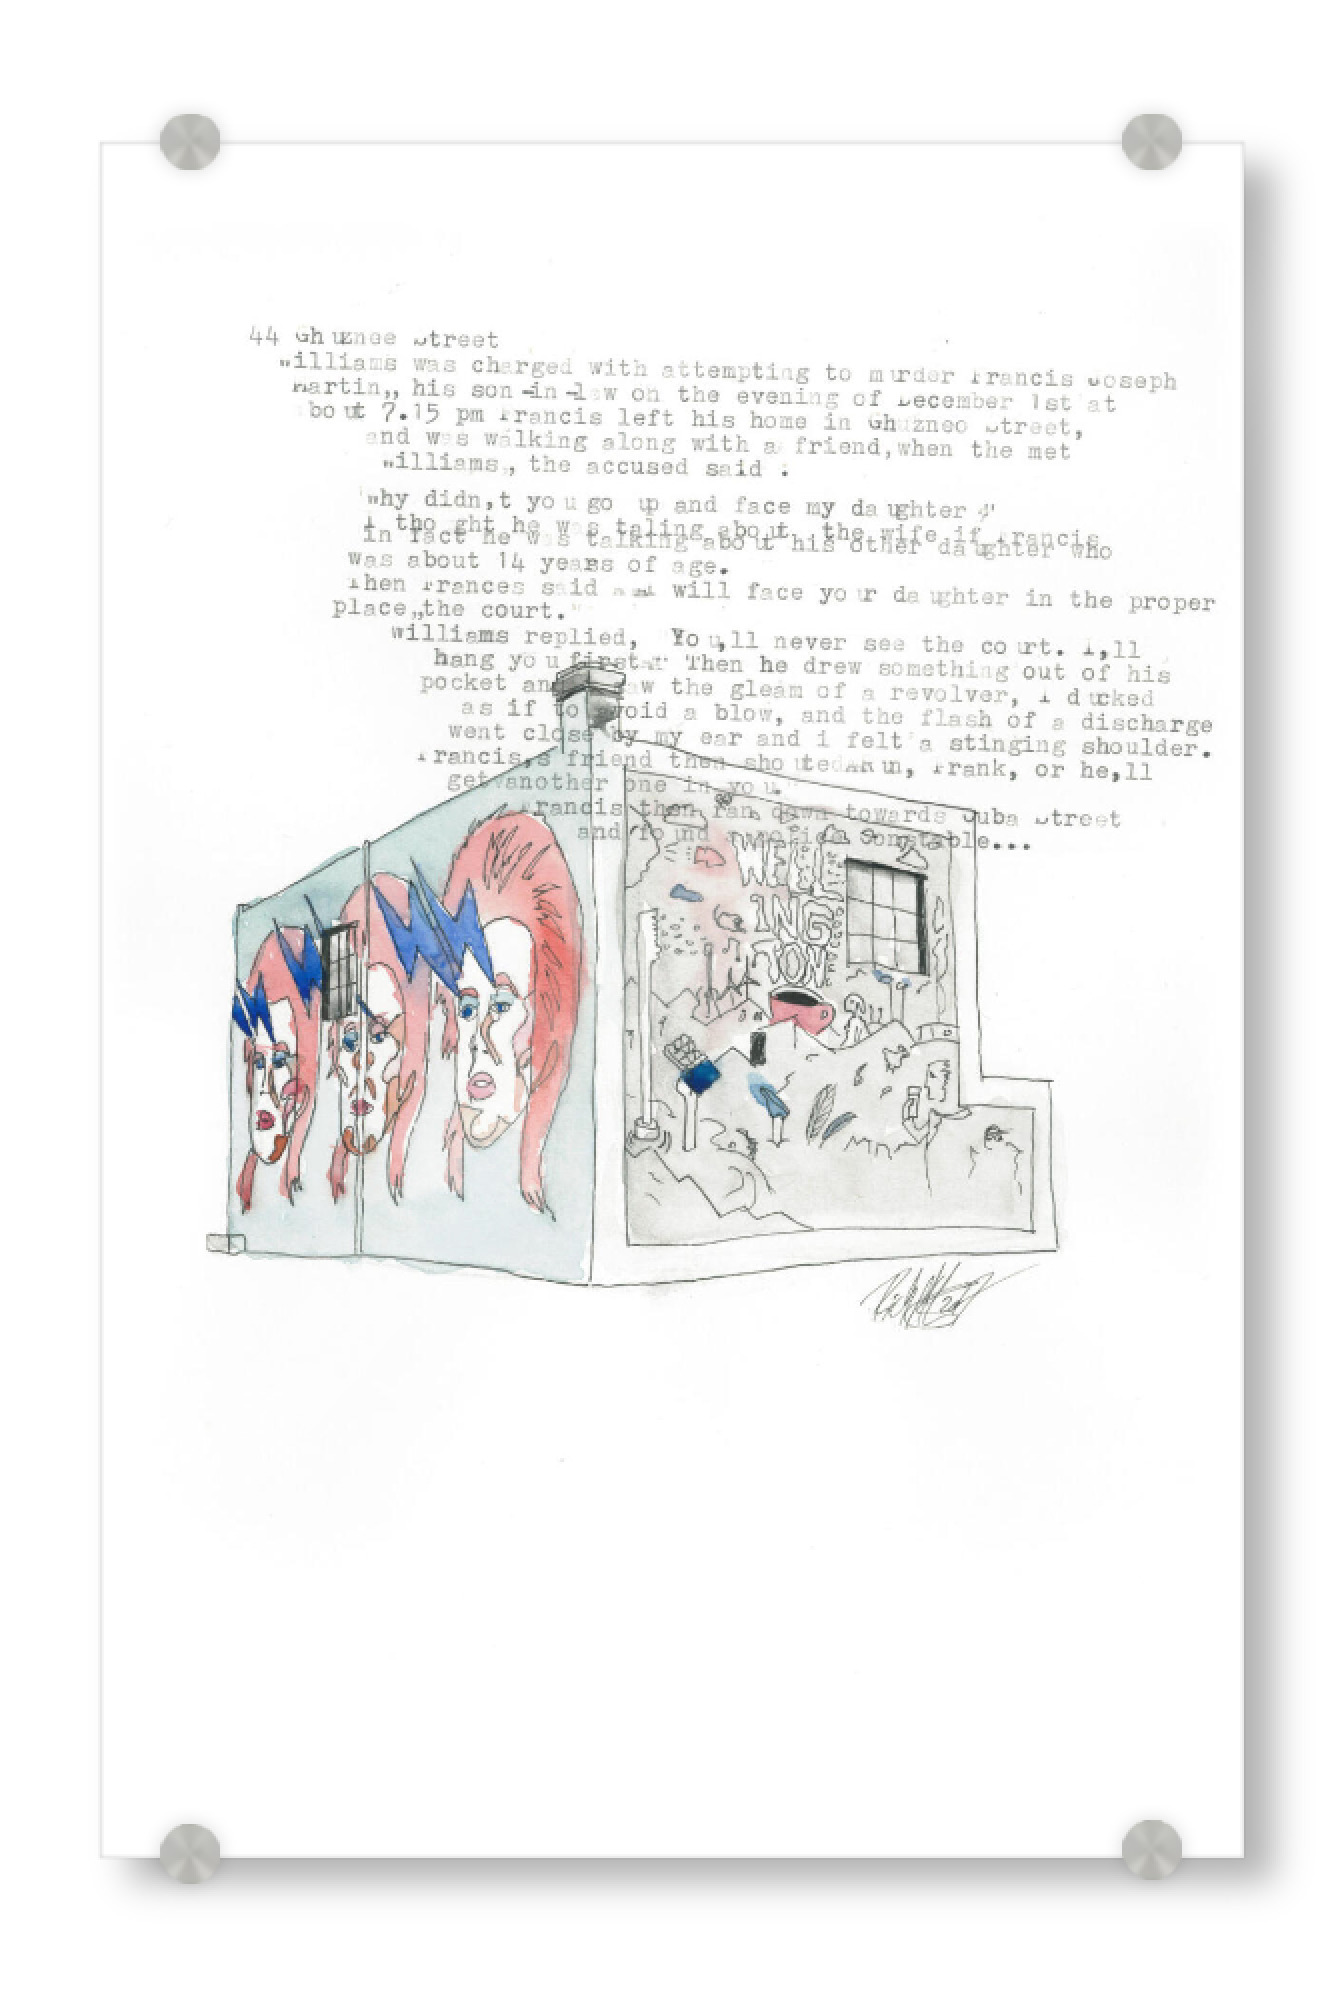 44 Ghuznee Street
Williams was charged with attempting to murder Francis Joseph
Martin,, his son-in-law on the evening of December 1st at
about 7.15 pm Francis left his home in Ghuznee Street,
and was walking along with a friend,when the met
Williams,, the accused said .
"Why didn,t you go up and face my daughter ?"
I thought he was taling about the wife if Francis
in fact he was talking about his other daughter who
was about 14 years of age.
Then Frances said will face your daughter in the proper
place,,the court."
Williams replied, "You,ll never see the court. I,ll
hang you first." Then he drew something out of his
pocket and saw the gleam of a revolver, I ducked
as if to avoid a blow, and the flash of a discharge
went close by my ear and i felt a stinging shoulder.
Francis,s friend then shouted Run, Frank, or he,ll
get another one in you."
Francis then ran down towards Cuba Street
and found a police Constable...
WELL
ING
TON